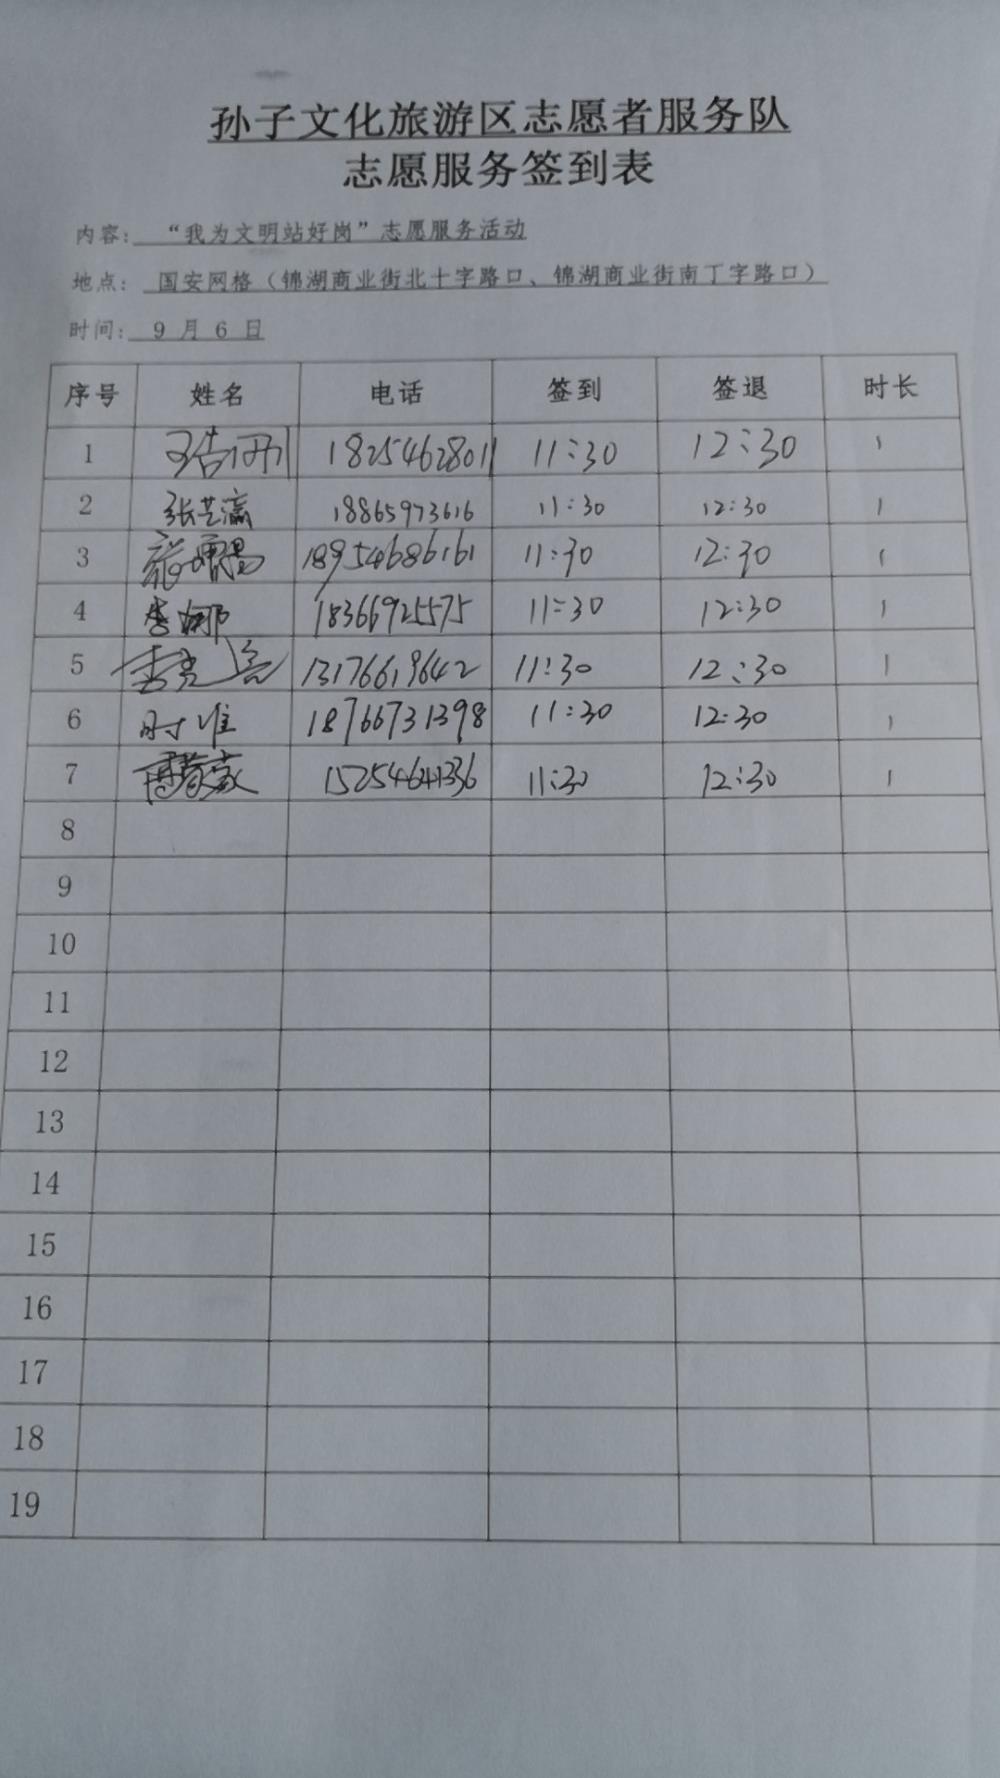 孙子文化旅游区志愿者服务队
志愿服务签到表
内容： “我为文明站好岗”志愿服务活动
地点： 国安网格（锦湖商业街北十字路口、锦湖商业街南丁字路口）
时间： 9 月 6 日
序号 姓名 电话 签到 签退 时长
1 18254628011 11:30 12:30 1
2 张芝瀛 18865973616 11:30 12:30 1
3 18954686161 11:30 12:30 1
4 李娜 18366925575 11:30 12:30 1
5 13176619642 11:30 12:30 1
6 时维 18766731398 11:30 12:30 1
7 11:30 12:30 1
8
9
10
11
12
13
14
15
16
17
18
19